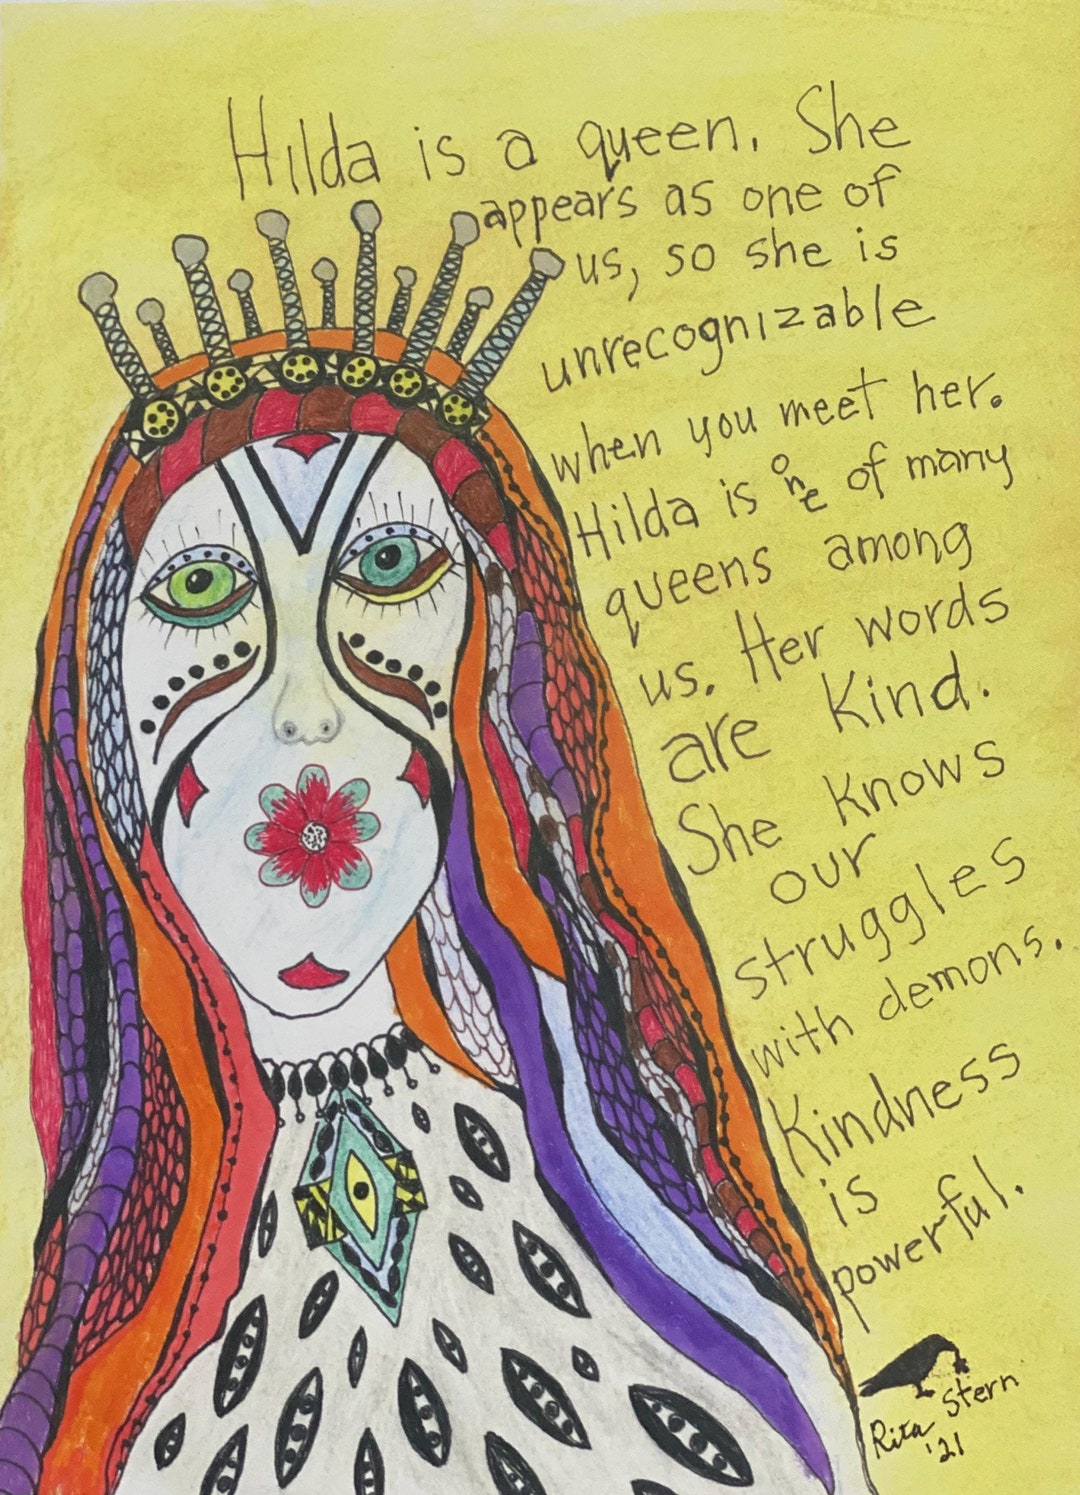 Hilda is a queen. She
appears as one of
us, so she is
unrecognizable
when you meet her.
Hilda is one of many
queens among
us. Her words
are kind.
She knows
our
struggles
with demons.
Kindness
is
powerful.
Rita Stern
'21